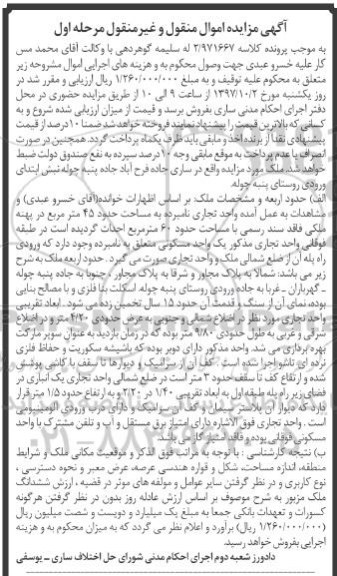 آگهی مزایده اموال منقول و غیرمنقول مرحله اول
به موجب پرونده کلاسه ۲/۹۷۱۶۶۷ له سلیمه گوهردهی با وکالت آقای محمد مس
کار علیه خسرو عبدی جهت وصول محکوم به و هزینه های اجرایی اموال مشروحه زیر
متعلق به محکوم علیه توقیف و به مبلغ ۱/۲۶۰/۰۰۰/۰۰۰ ریال ارزیابی و مقرر شد در
روز یکشنبه مورخ ۱۳۹۷/۱۰/۲ از ساعت ۹ الی ۱۰ از طریق مزایده حضوری در محل
دفتر اجرای احکام مدنی ساری بفروش برسد و قیمت از میزان ارزیابی شده شروع و به
کسانی که بالاترین قیمت را پیشنهاد نمایند فروخته خواهد شد ضمنا ۱۰درصد از قیمت
پیشنهادی نقدا از برنده اخذ و مابقی باید ظرف یکماه پرداخت گردد. همچنین در صورت
انصراف یا عدم پرداخت به موقع مابقی وجه ۱۰درصد سپرده به نفع صندوق دولت ضبط
خواهد شد. ملک مورد مزایده واقع در ساری جاده فرح آباد جاده پنبه چوله نبش ابتدای
ورودی روستای پنبه چوله.
الف) حدود اربعه و مشخصات ملک: بر اساس اظهارات خوانده(آقای خسرو عبدی) و
مشاهدات به عمل آمده واحد تجاری نامبرده به مساحت حدود ۴۵ متر مربع در پهنه
ملکی فاقد سند رسمی با مساحت حدود ۶۰ مترمربع احداث گردیده است در طبقه
فوقانی واحد تجاری مذکور یک واحد مسکونی متعلق به نامبرده وجود دارد که ورودی
راه پله آن از ضلع شمالی ملک و واحد تجاری صورت می گیرد. حدود اربعه ملک به شرح
زیر می باشد: شمالا به پلاک مجاور و شرقا به پلاک مجاور ، جنوبا به جاده پنبه چوله
ـ گهرباران ـ غربا به جاده ورودی روستای پنبه چوله. اسکلت بنا فلزی و با مصالح بنایی
بوده، نمای آن از سنگ و قدمت آن حدود ۱۵ سال تخمین زده می شود . ابعاد تقریبی
واحد تجاری مورد نظر در اضلاع شمالی و جنوبی به عرض حدودی ۴/۲۰ متر و در اضلاع
شرقی و غربی به طول حدودی ۹/۸۰ متر بوده که در زمان بازدید به عنوان سوپر مارکت
بهره برداری می شد. واحد مذکور دارای دوبر بوده که باشیشه سکوریت و حفاظ فلزی
نرده ای تاشو اجرا شده است . کف آن از سرامیک و دیوارها تا سقف با کاشی پوشش
شده و ارتفاع کف تا سقف حدود ۳ متر است در ضلع شمالی واحد تجاری یک انباری در
فضای زیر راه پله طبقه اول به ابعاد تقریبی ۱/۴۰ در ۲/۲۰ و به ارتفاع حدود ۱/۵ متر قرار
دارد که دیوار آن پلاستر سیمان و کف آن سرامیک و دارای درب ورودی آلومینیومی
است . واحد تجاری فوق الاشاره دارای امتیاز برق مستقل و آب و تلفن مشترک با واحد
مسکونی فوقانی بوده و فاقد امتیاز گاز می باشد.
ب) نتیجه کارشناسی : با توجه به مراتب فوق الذکر و موقعیت مکانی ملک و شرایط
منطقه، اندازه مساحت، شکل و قواره هندسی عرصه، عرض معبر و نحوه دسترسی ،
نوع کاربری و در نظر گرفتن سایر عوامل و مولفه های موثر در قضیه ، ارزش ششدانگ
ملک مزبور به شرح موصوف بر اساس ارزش عادله روز بدون در نظر گرفتن هرگونه
کسورات و تعهدات بانکی جمعا به مبلغ یک میلیارد و دویست و شصت میلیون ریال
(۱/۲۶۰/۰۰۰/۰۰۰ ریال) برآورد و اعلام نظر می گردد که به میزان محکوم به و هزینه
اجرایی بفروش خواهد رسید.
دادورز شعبه دوم اجرای احکام مدنی شورای حل اختلاف ساری ـ یوسفی